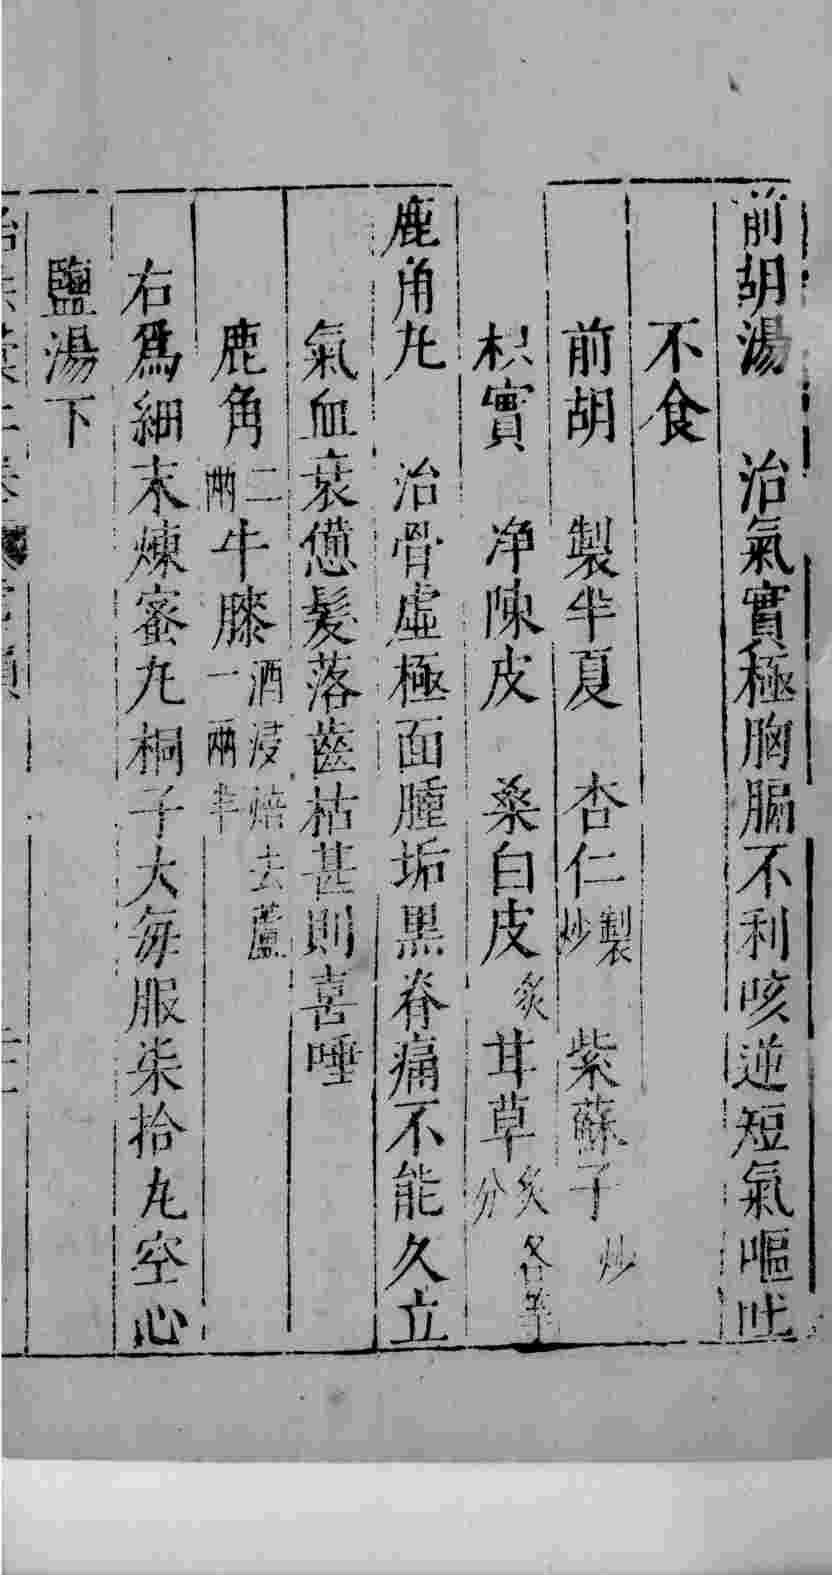 前胡湯　治氣實極胸膈不利咳逆短氣嘔吐
不食
前胡　製半夏　杏仁製炒　紫蘇子炒
枳實　净陳皮　桑白皮炙　甘草炙各等分
鹿角丸　治骨虛極面腫垢黒脊痛不能久立
氣血衰憊髮落齒枯甚則喜唾
鹿角二兩牛膝酒浸焙去蘆一兩半
右爲細末煉蜜丸桐子大每服柒拾丸空心
鹽湯下